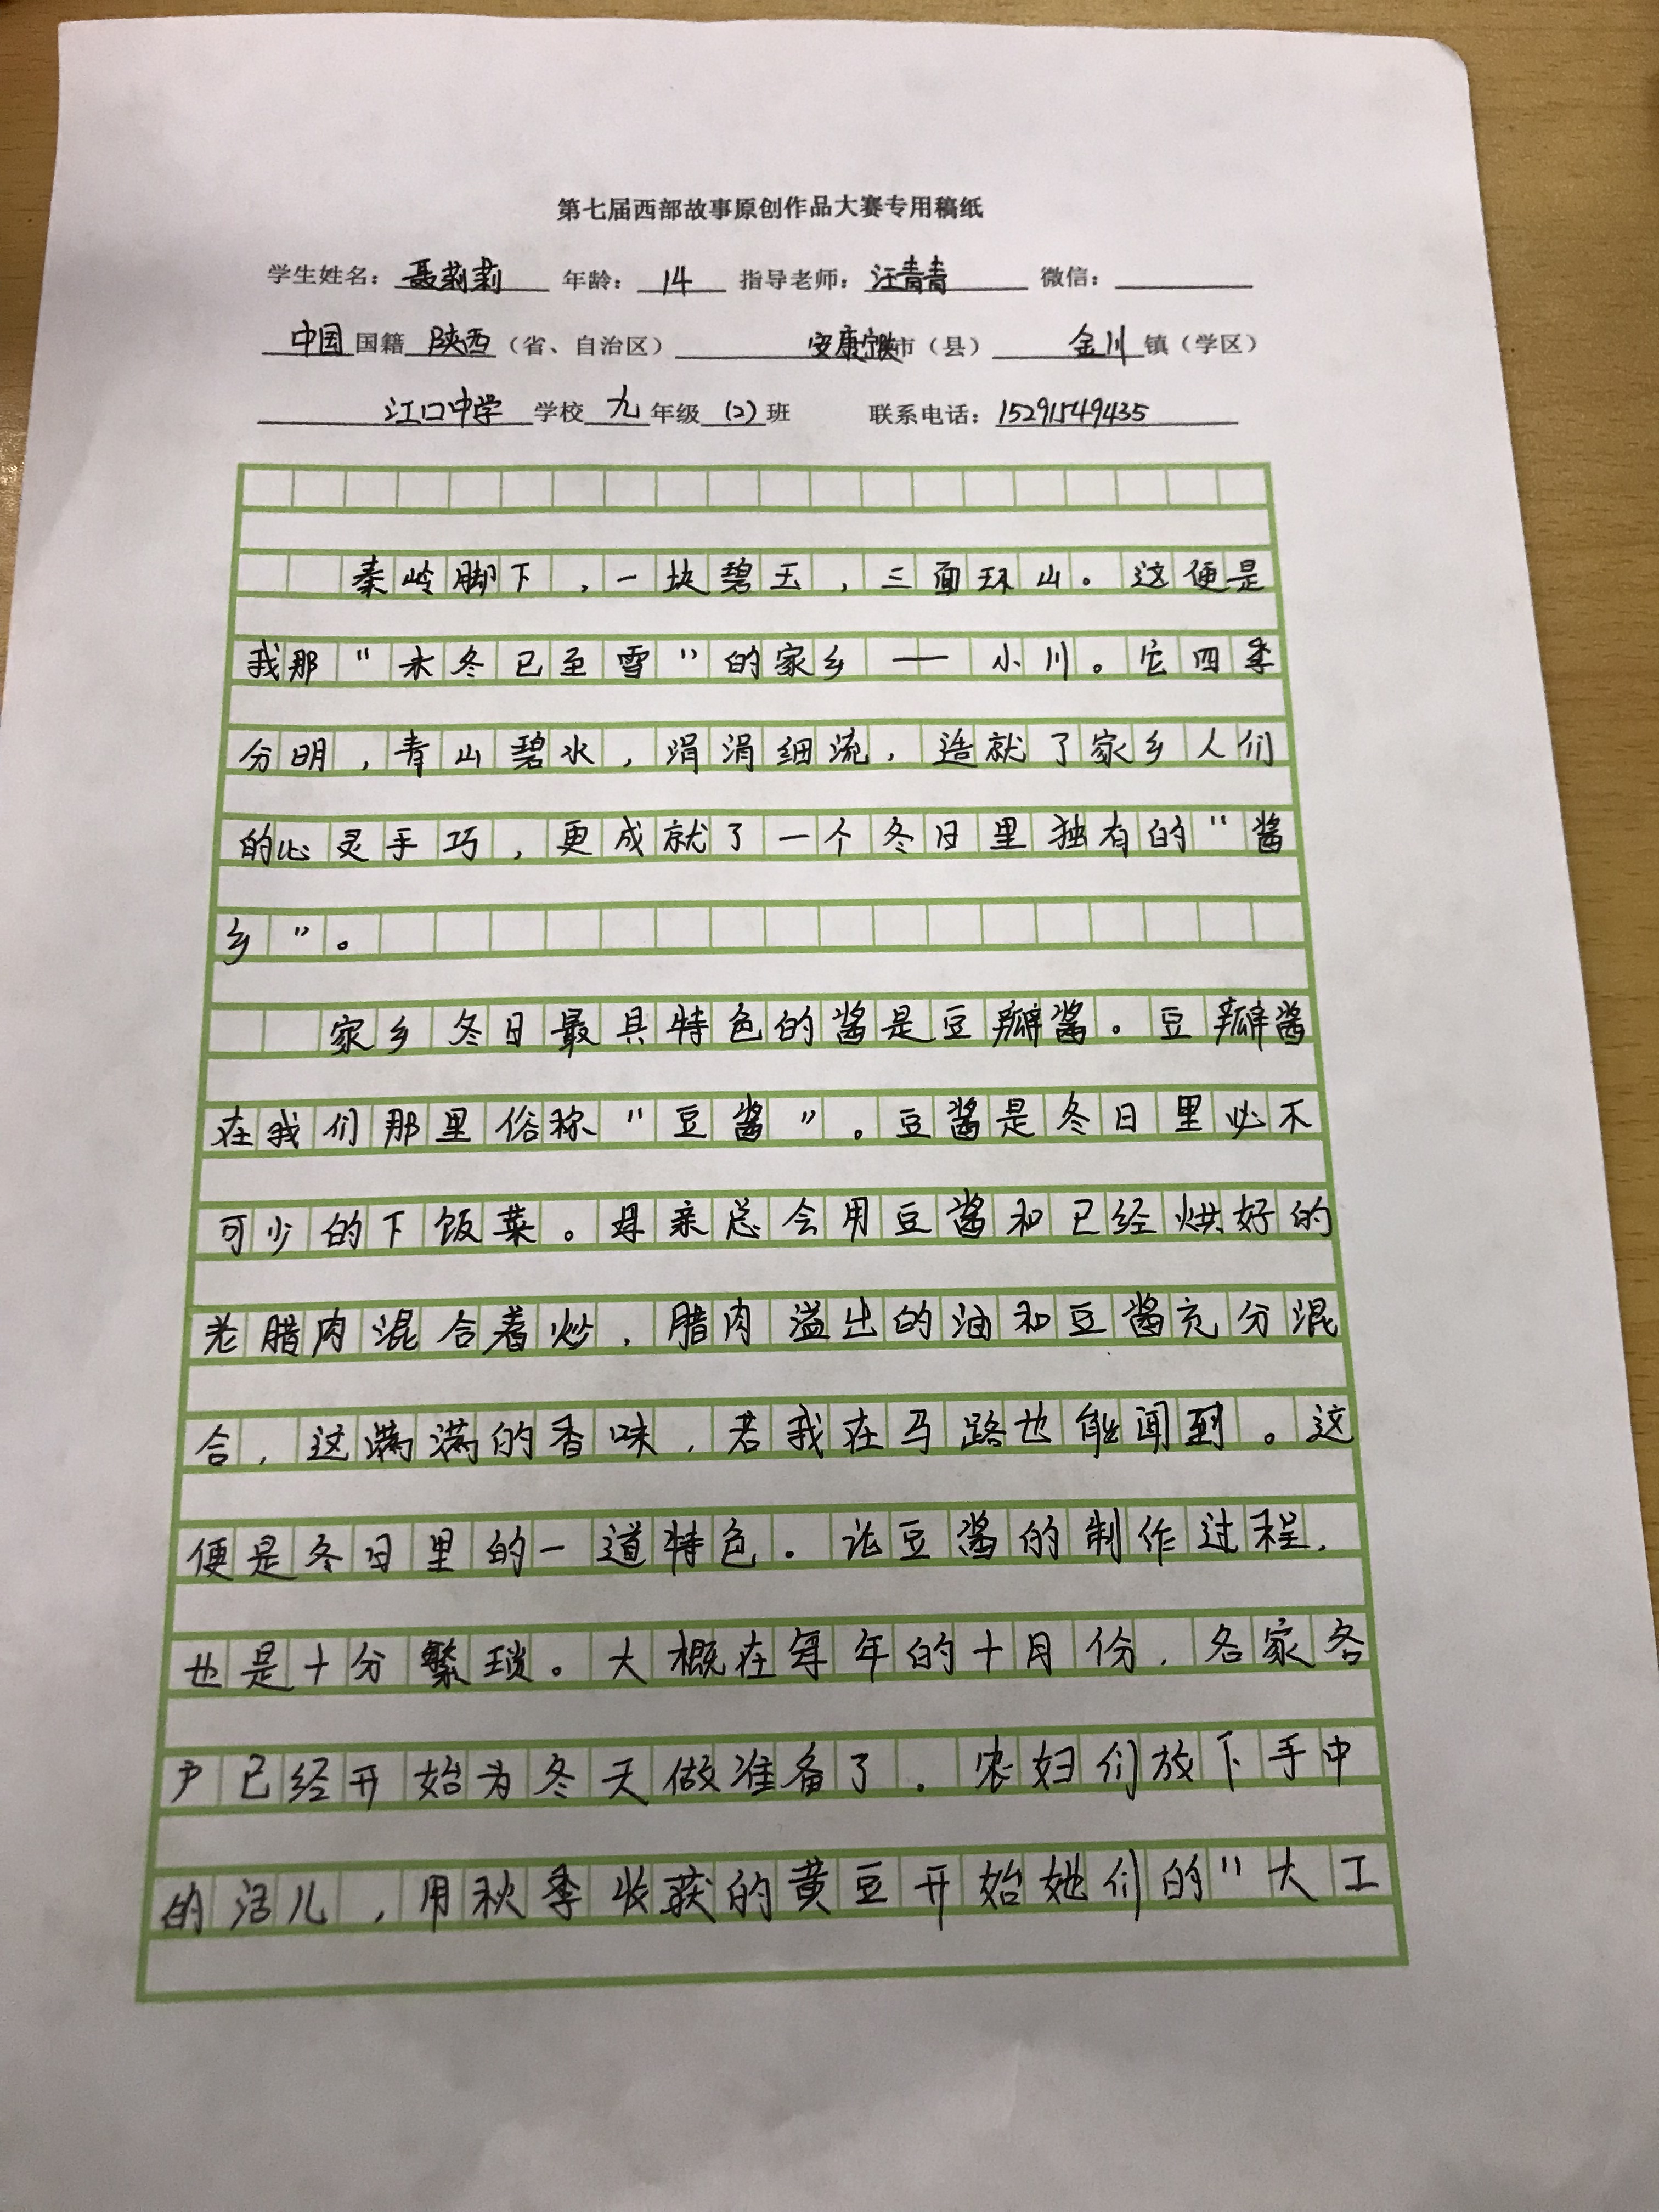 第七届西部故事原创作品大赛专用稿纸
学生姓名：聂莉莉 年龄：14 指导老师：汪青青 微信：
中国国籍 陕西（省、自治区） 安康 市（县） 金川镇（学区）
江口中学学校九年级（2）班 联系电话：15291549435
秦岭脚下，一块碧玉，三面环山。这便是
我那“未冬已至雪”的家乡——小川。它四季
分明，青山碧水，涓涓细流，造就了家乡人们
的心灵手巧，更成就了一个冬日里独有的“酱
乡”。
家乡冬日最具特色的酱是豆瓣酱。豆瓣酱
在我们那里俗称“豆酱”。豆酱是冬日里必不
可少的下饭菜。母亲总会用豆酱和已经烘好的
老腊肉混合着炒，腊肉溢出的油和豆酱充分混
合，这满满的香味，若我在马路也能闻到。这
便是冬日里的一道特色。论豆酱的制作过程，
也是十分繁琐。大概在每年的十月份，各家各
户已经开始为冬天做准备了。农妇们放下手中
的活儿，用秋季收获的黄豆开始她们的“大工